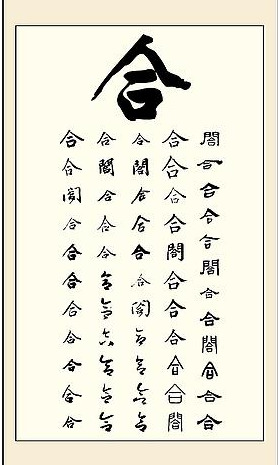 合
閤合合合合閤合合閤合合合
合合合合閤合合合合合閤
合閤合合合合閤合合合合
合閤合合合合合合合合合
合合閤合合合合合合合合